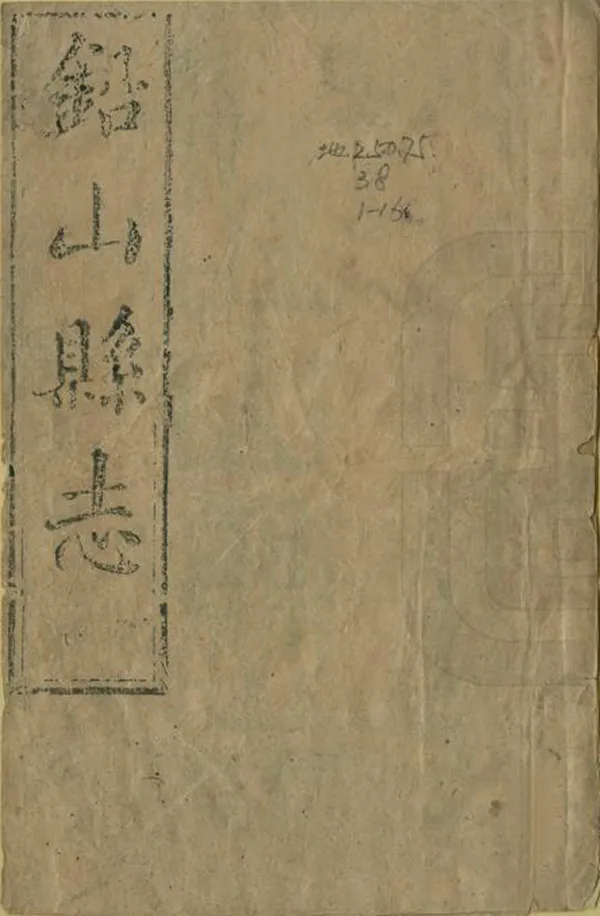 鉛山縣志
地250.75
38
1-16